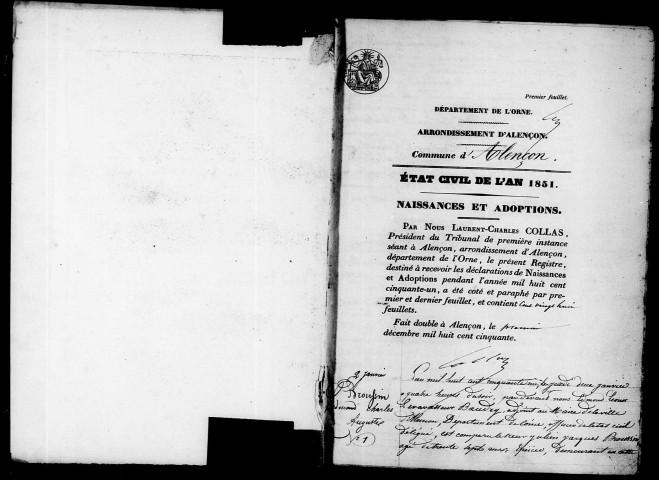 Premier feuillet.
DÉPARTEMENT DE L'ORNE.
ARRONDISSEMENT D'ALENÇON.
Commune d'Alençon.
ÉTAT CIVIL DE L'AN 1851.
NAISSANCES ET ADOPTIONS.
PAR NOUS LAURENT-CHARLES COLLAS,
Président du Tribunal de première instance
séant à Alençon, arrondissement d'Alençon,
département de l'Orne, le présent Registre,
destiné à recevoir les déclarations de Naissances
et Adoptions pendant l'année mil huit cent
cinquante-un, a été coté et paraphé par pre-
mier et dernier feuillet, et contient cent vingt huit
feuillets.
Fait double à Alençon, le premier
décembre mil huit cent cinquante.
2 janvier
Charles
Auguste
(1)
L'an mil huit cent cinquante un, le jeudi deux janvier
quatre heures du soir, par devant nous
adjoint au Maire de la ville
d'Alençon, Département de l'orne, officier de l'état civil
délégué, est comparu le sieur julien jacques
agé de trente sept ans, épicier, demeurant en cette